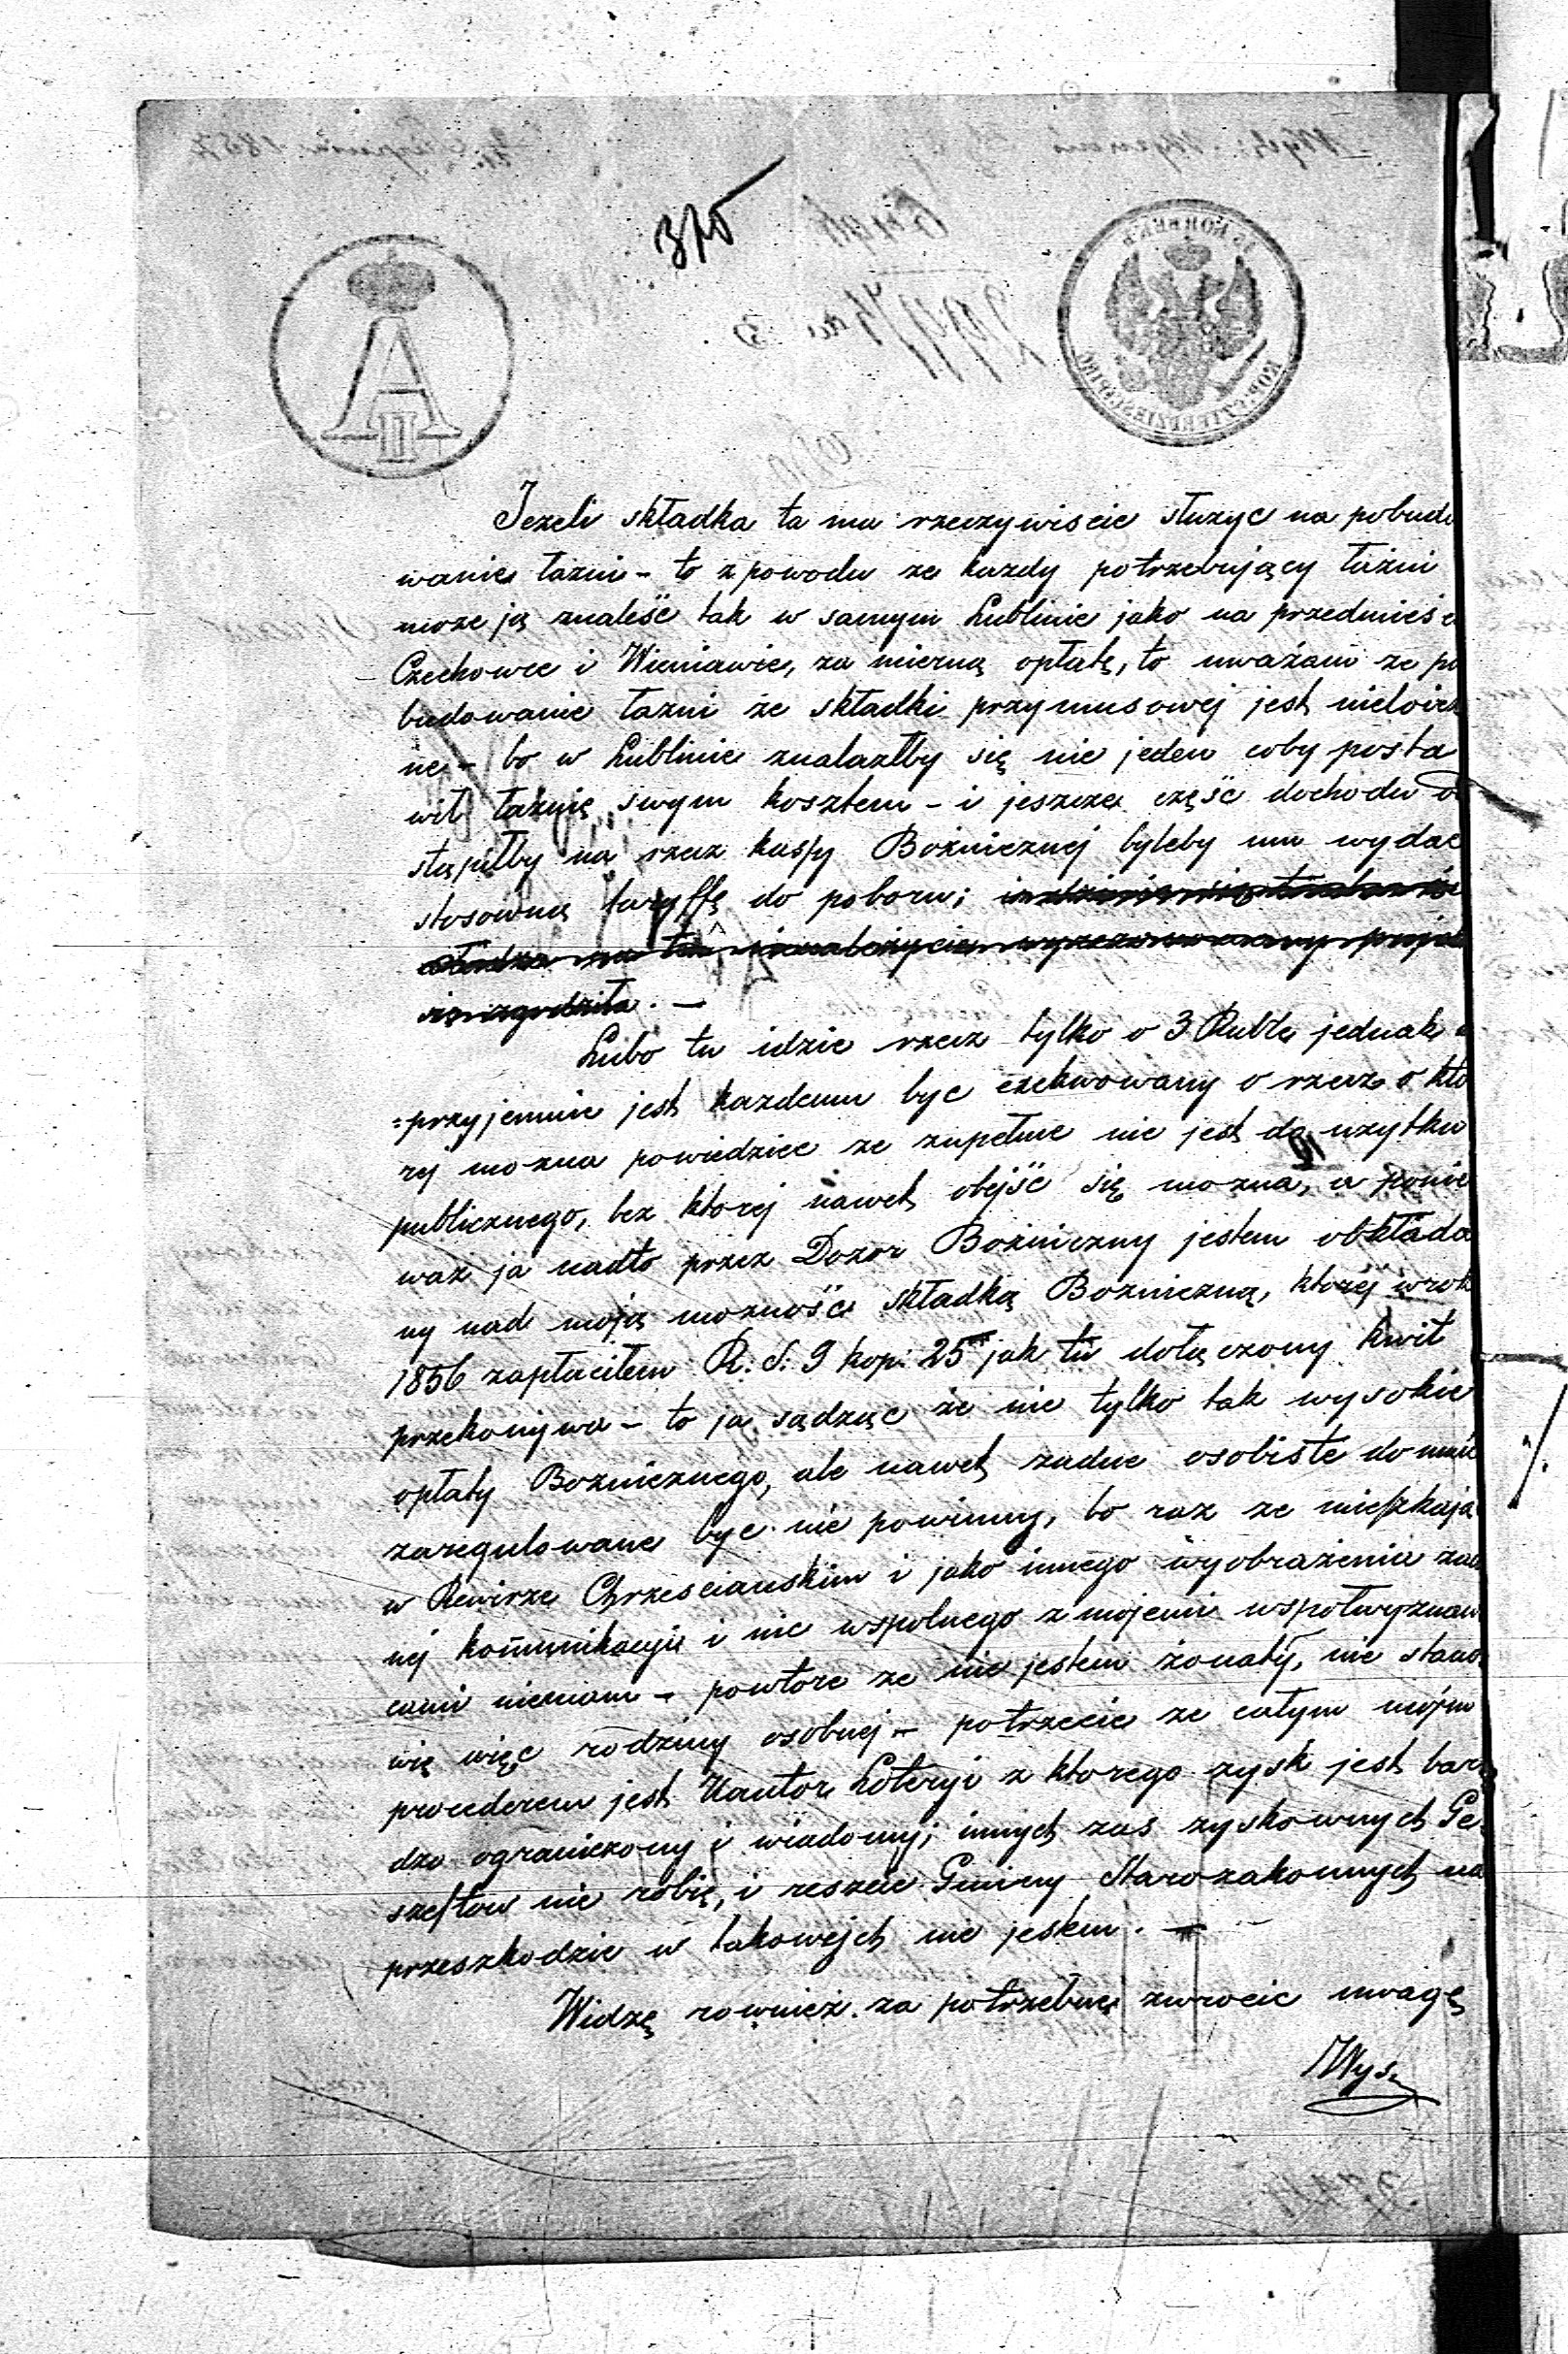 370
A II
Jezeli składka ta ma rzeczywiscie służyc na pobudo
wanie łazni - to z powodu ze kazdy potrzebujący łaźni
moze ją znaleść tak w samym Lublinie jako na przedmieś
Czechowce i Wieniawie, za mierną opłatę, to uważam ze po
budowanie łazni ze składki przymusowej jest
ne - bo w Lublinie znalazłby się nie jeden coby posta
wił łaznię swym kosztem - i jeszcze część dochodu o
stąpiłby na rzecz kassy Bożniczney byleby mu wydac
stosowną taryffę do poboru;
się zgodziła. —
Lubo tu idzie rzecz tylko o 3 Ruble jednak
=przyjemnie jest kazdemu byc exekwowany o rzecz o któ
rej mozna powiedziec ze zupełnie nie jest do uzytku
publicznego, bez ktorej nawet obejść się mozna, a ponie
waz ja nadto przez Dozor Bożniczny jestem obkłada
ny nad moją mozność składką Bozniczną, ktorej w rok
1856 zapłaciłem R. S. 9 kop. 25 jak tu dołączony kwit
przekonywa - to ja sądząc że nie tylko tak wysokie
opłaty Boznicznego, ale nawet zadne osobiste do mnie
zaregulowane byc nie powinny, bo raz ze mieszkają
w Rewirze Chrzesciańskim i jako innego wyobrażenia zad
nej kommunikacyi i nic wspolnego z mojemi wspołwyznaw
cami niemam - powtóre ze nie jestem żonaty, nie stano
wię więc rodziny osobnej - potrzecie ze całym mojm
procederem jest Kantor Loteryi z ktorego zysk jest bar
dzo ograniczony i wiadomy; innych zas zyskownych Ge
szeftow nie robię, i reszcie Gminy Starozakonnych na
przeszkodzie w takowych nie jestem. —
Widzę rownież za potrzebne zwrocic uwagę